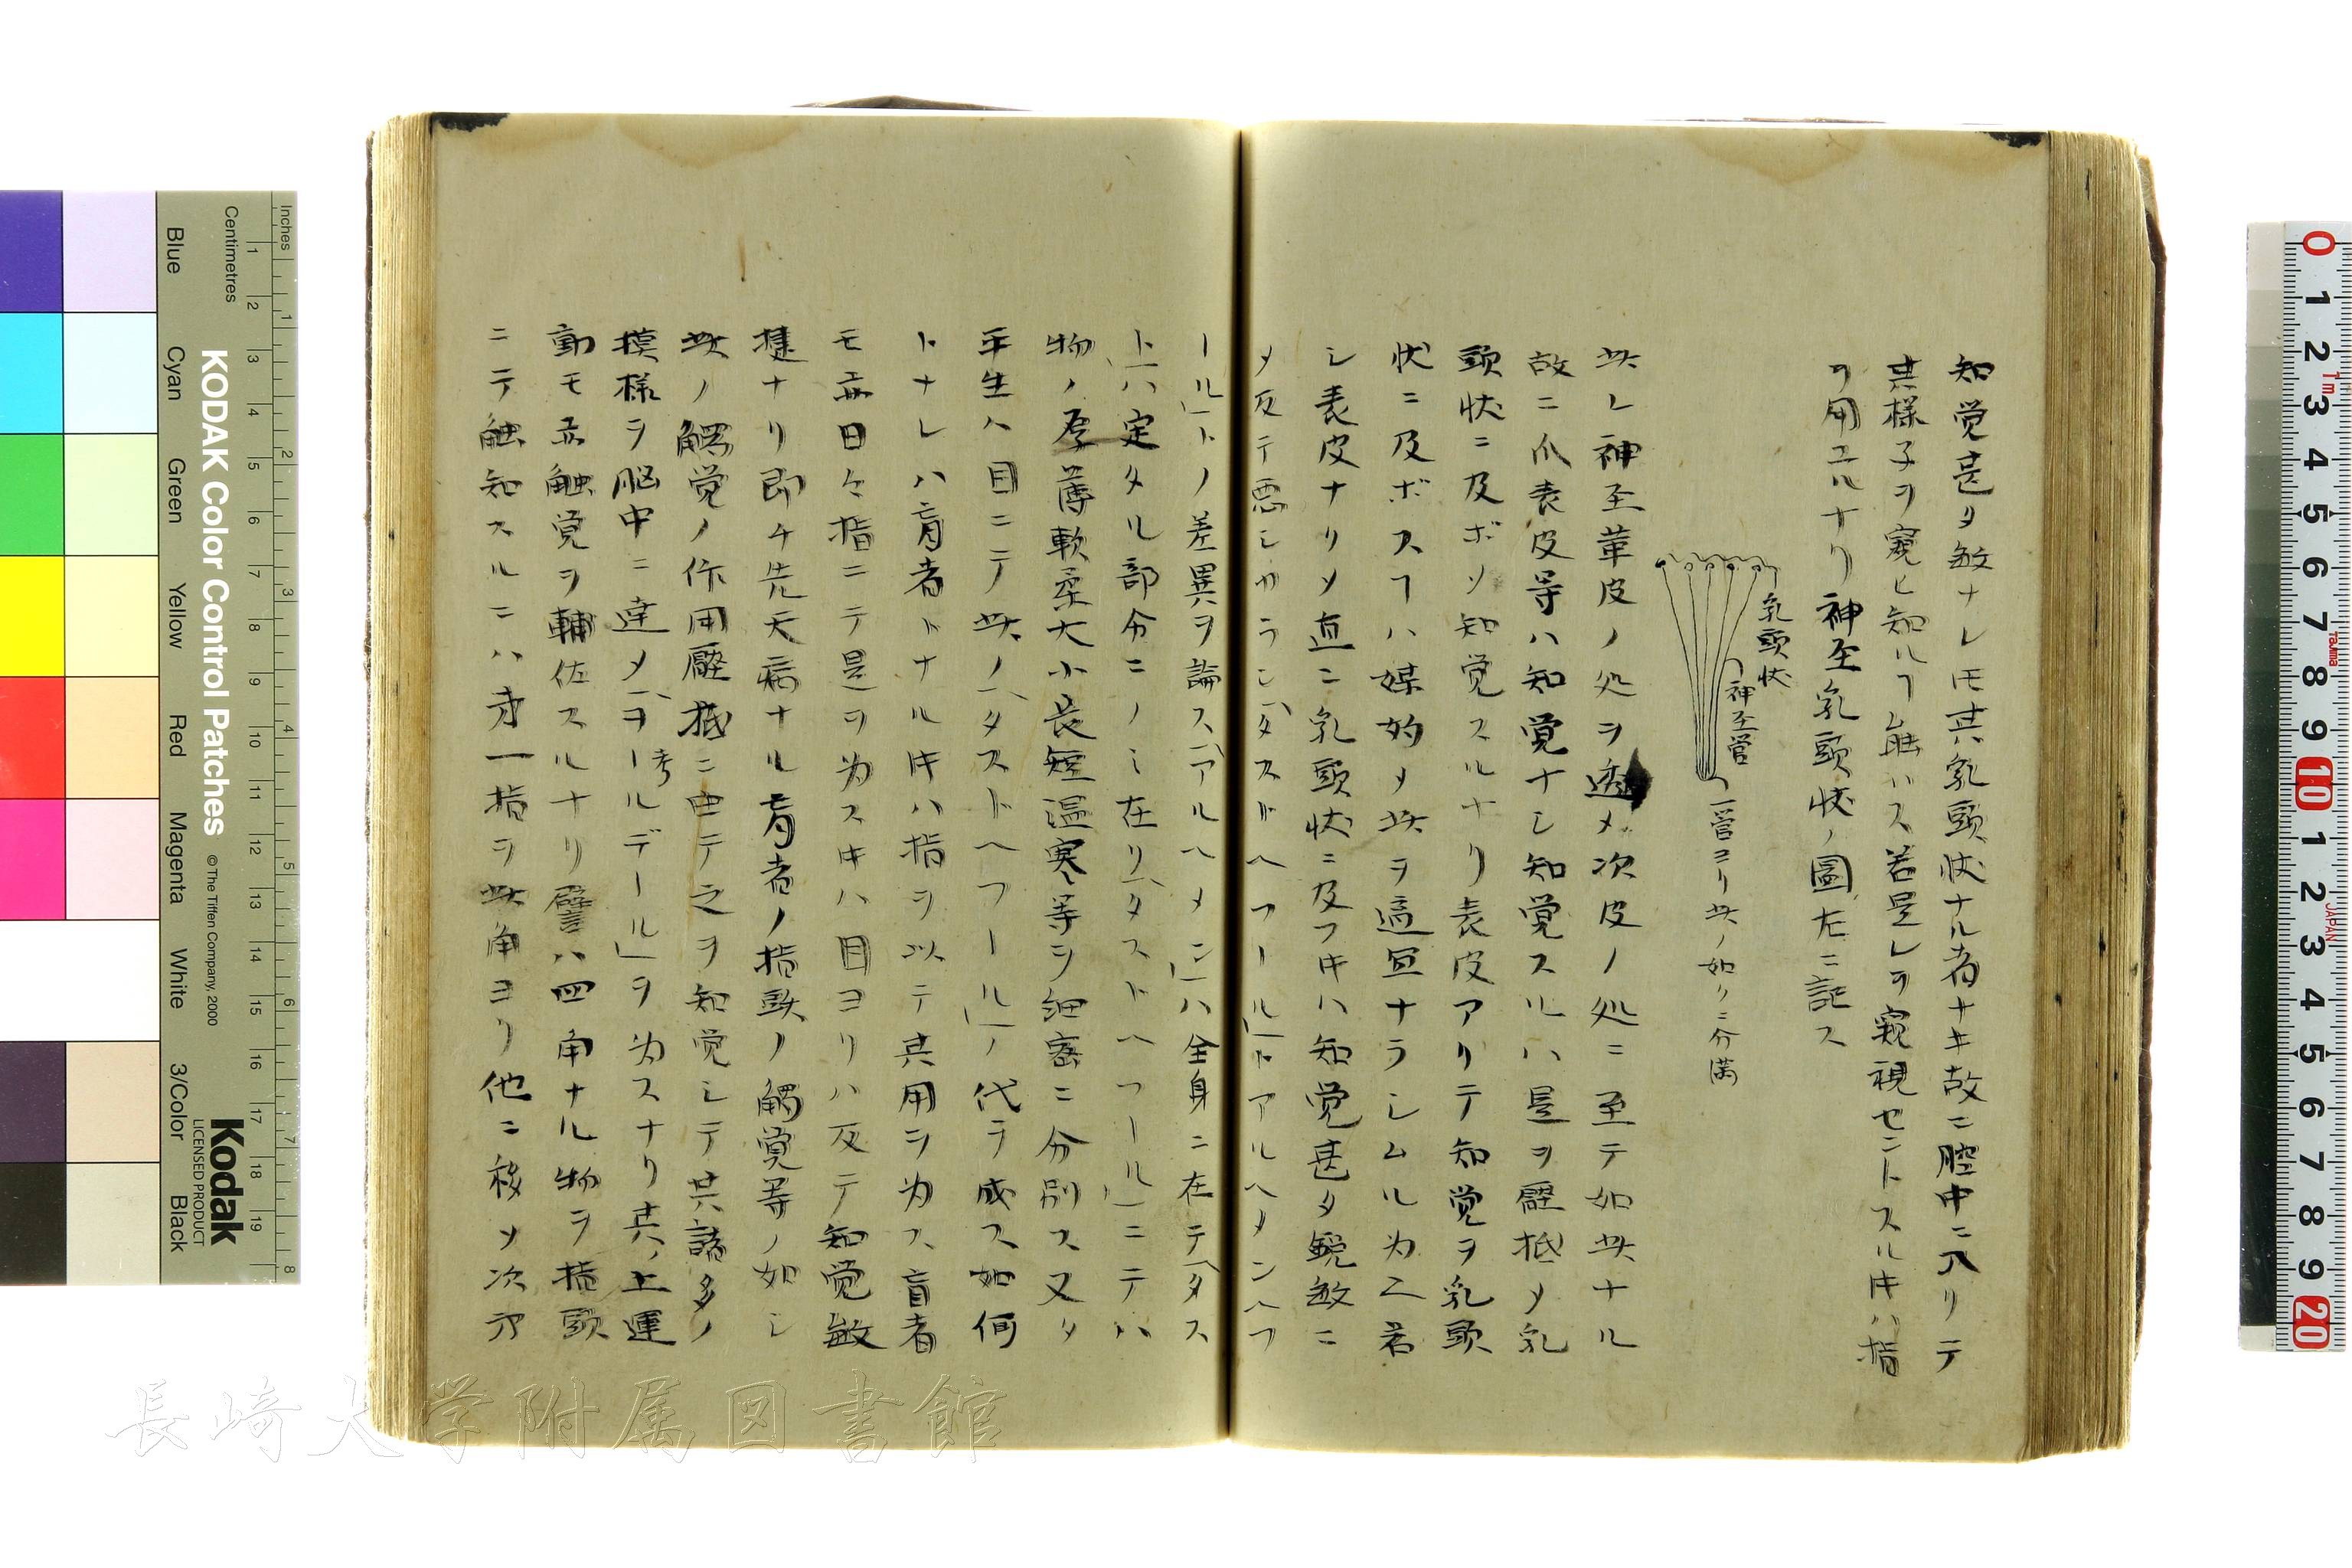 知覚甚タ敏ナレ𪜈其乳頭状ナル者ナキ故ニ腔中ニ入リテ
其様子ヲ窺ヒ知ルヿ能ハス若是レヲ窺視セントスルキハ指
ヲ用エルナリ神至乳頭状ノ圖左ニ記ス
乳頭状
神至管
一管ヨリ此ノ如クニ分満
此レ神至華皮ノ処ヲ透メ次皮ノ処ニ至テ如此ナル
故ニ爪表皮等ハ知覚ナシ知覚スルハ是ヲ壓抵メ乳
頭状ニ及ボソ知覚スルナリ表皮アリテ知覚ヲ乳頭
状ニ及ボスヿハ媒妁メ此ヲ適宜ナラシムル为ニ若
シ表皮ナリメ直ニ乳頭状ニ及フキハ知覚甚タ鋭敏ニ
メ反テ悪シカランタストヘフールトアルヘメンヘフ
ールトノ差異ヲ論スアルヘメンハ全身ニ在テタス
トハ定タル部分ニノミ在リタストヘフールニテハ
物ノ厚薄軟柔大小長短温寒等ヲ細密ニ分別ス又タ
平生ハ目ニテ此ノタストヘフールノ代ラ成ス如何
トナレハ盲者トナルキハ指ヲ以テ其用ヲ为ス盲者
モ亦日々指ニテ是ヲ为スキハ目ヨリハ反テ知覚敏
捷ナリ即チ先天病ナル盲者ノ指頭ノ觸覚等ノ如シ
此ノ觸覚ノ作用壓抵ニ由テ之ヲ知覚シテ其諸多ノ
模様ヲ脳中ニ達メヲールデールヲ为スナリ其ノ上運
考
動モ亦触覚ヲ輔佐スルナリ譬ハ四角ナル物ヲ指頭
ニテ触知スルニハ才一指ヲ此角ヨリ他ニ移ソ次㐧
KODAK Color Control Patches
© The Tiffen Company, 2000
Kodak
LICENSED PRODUCT
Inches
Centimetres
Blue
Cyan
Green
Yellow
Red
Magenta
White
3/Color
Black
長崎大学附属図書館